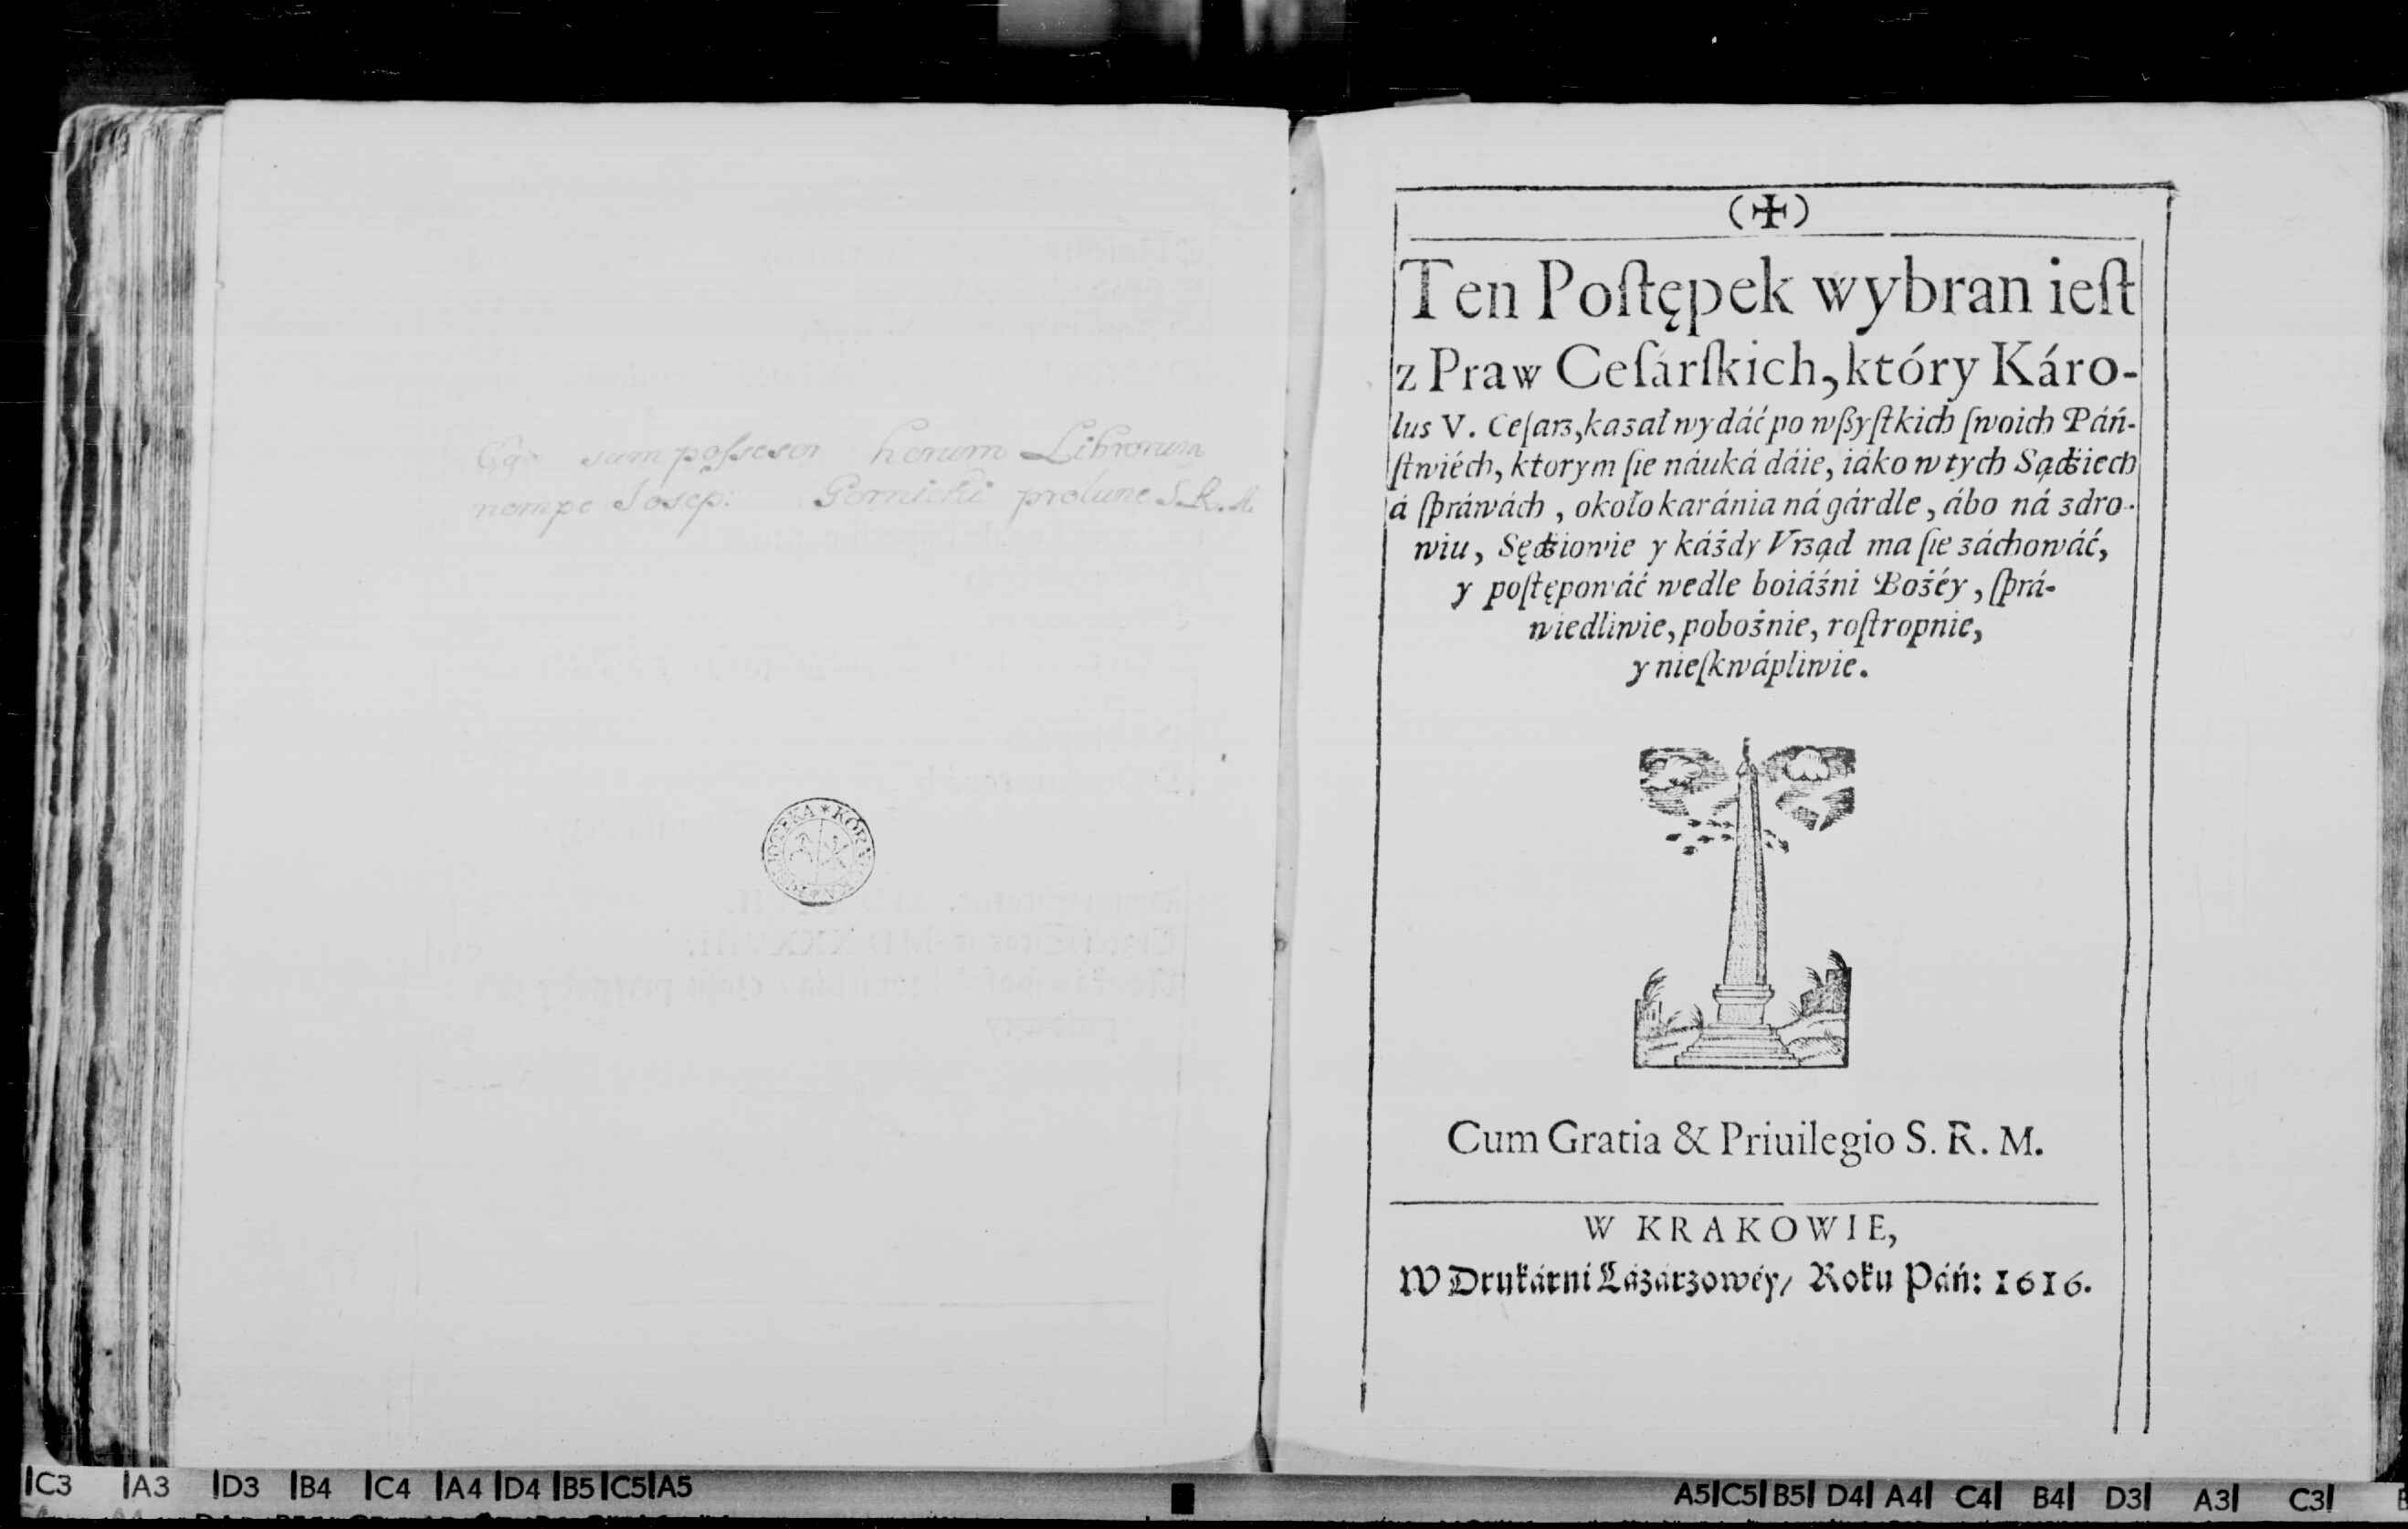 Ego sum possesor horum Librorum
nempe Josep: Gornicki
BIBLIOTEKA * KÓRNICKA
(✠)
Ten Poſtępek wybran ieſt
z Praw Ceſárſkich, który Káro-
lus V. Ceſarz, kazał wydáć po wßyſtkich ſwoich Páń-
ſtwiéch, ktorym ſie náuká dáie, iáko w tych Sądźiech
á ſpráwách, około karánia ná gárdle, ábo ná zdro-
wiu, Sędźiowie y káżdy Vrząd ma ſie záchowáć,
y poſtępowáć wedle boiáźni Bożéy, ſprá-
wiedliwie, pobożnie, roſtropnie,
y nieſkwápliwie.
Cum Gratia & Priuilegio S. R. M.
W KRAKOWIE,
W Drukárni Łázárzowéy/ Roku Páń: 1616.
C3 A3 D3 B4 C4 A4 D4 B5 C5 A5
A5 C5 B5 D4 A4 C4 B4 D3 A3 C3